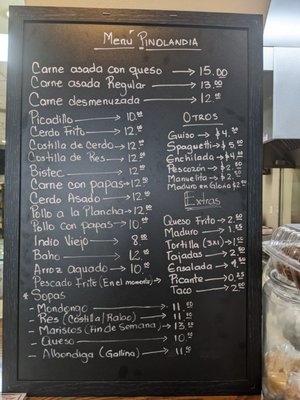 Menú Pinolandia
Carne asada con queso → 15.00
Carne asada Regular → 13.00
Carne desmenuzada → 12.00
Picadillo → 10.00
Cerdo Frito → 12.00
Costilla de Cerdo → 12.00
Costilla de Res → 12.00
Bistec → 12.00
Carne con papas → 12.00
Cerdo Asado → 12.00
Pollo a la Plancha → 12.00
Pollo con papas → 10.00
Indio Viejo → 8.00
Baho → 12.00
Arroz Aguado → 10.00
Pescado Frito (En el momento) →
* Sopas
- Mondongo → 11.00
- Res (Costilla/Rabo) → 11.00
- Mariscos (Fin de Semana) → 13.00
- Queso → 10.00
- Albondiga (Gallina) → 11.00
Otros
Guiso → $4.50
Spaguetti → $5.00
Enchilada → $4.00
Pescozon → $2.50
Manuelita → $2.00
Maduro en Gloria $2.00
Extras
Queso Frito → 2.50
Maduro → 1.25
Tortilla (3x1) → 1.00
Tajadas → 2.00
Ensalada → 4.00
Picante → 0.25
Taco → 2.00